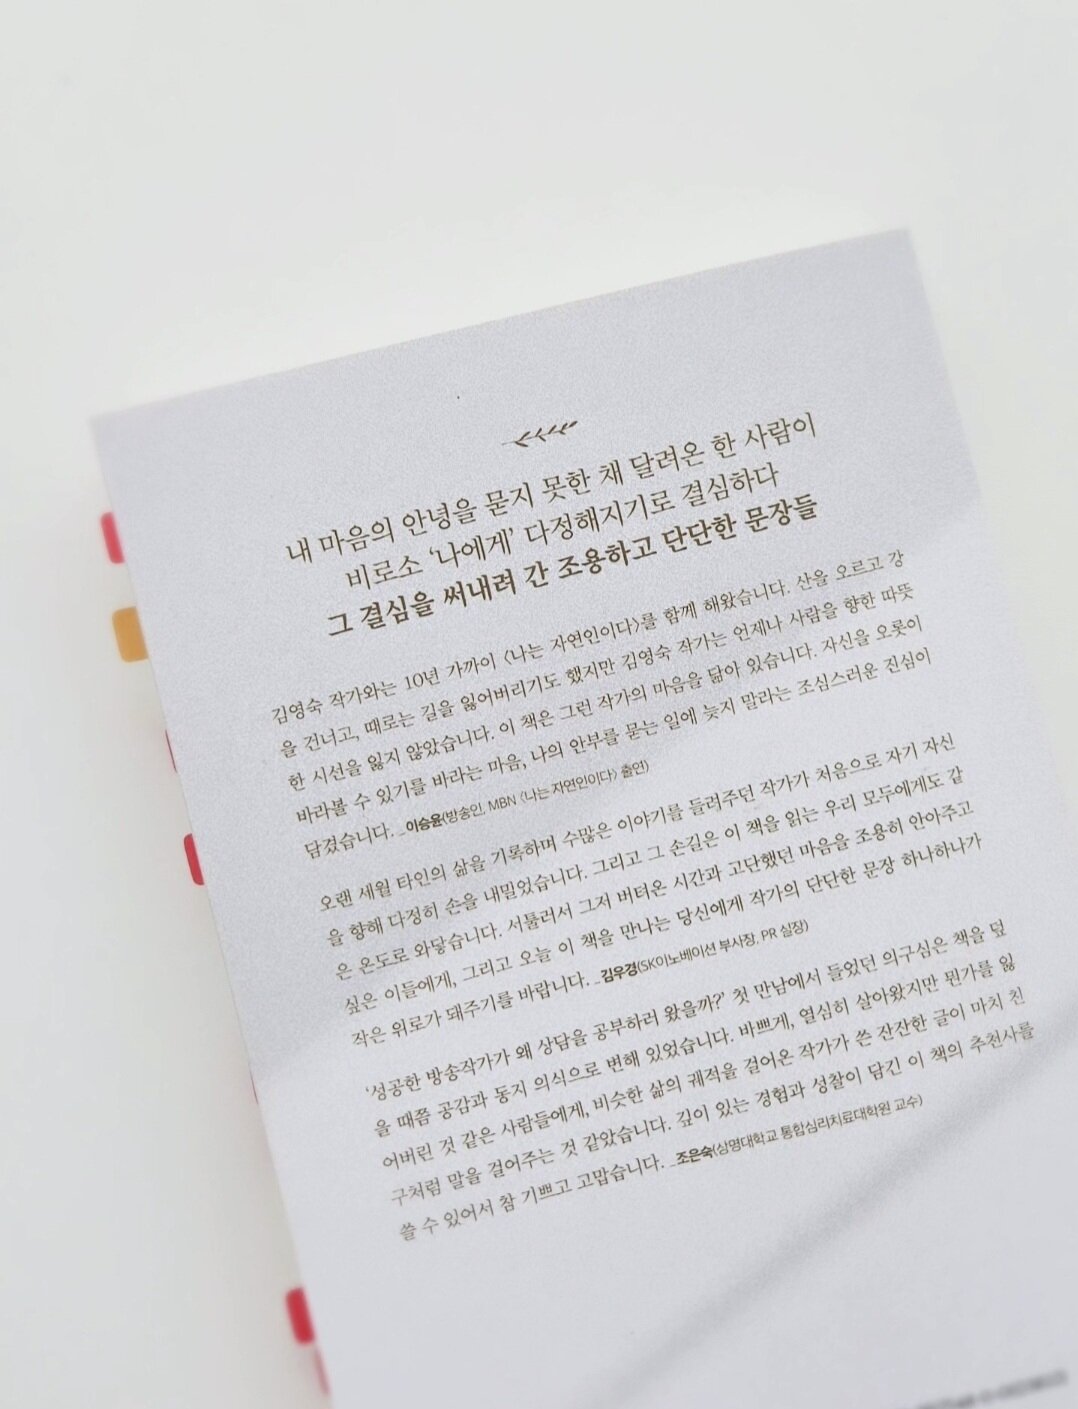 내 마음의 안녕을 묻지 못한 채 달려온 한 사람이
비로소 ‘나에게’ 다정해지기로 결심하다
그 결심을 써내려 간 조용하고 단단한 문장들
김영숙 작가와는 10년 가까이 〈나는 자연인이다〉를 함께 해왔습니다. 산을 오르고 강
을 건너고, 때로는 길을 잃어버리기도 했지만 김영숙 작가는 언제나 사람을 향한 따뜻
한 시선을 잃지 않았습니다. 이 책은 그런 작가의 마음을 닮아 있습니다. 자신을 오롯이
바라볼 수 있기를 바라는 마음, 나의 안부를 묻는 일에 늦지 말라는 조심스러운 진심이
담겼습니다. _이승윤(방송인, MBN 〈나는 자연인이다〉 출연)
오랜 세월 타인의 삶을 기록하며 수많은 이야기를 들려주던 작가가 처음으로 자기 자신
을 향해 다정히 손을 내밀었습니다. 그리고 그 손길은 이 책을 읽는 우리 모두에게도 같
은 온도로 와닿습니다. 서툴러서 그저 버텨온 시간과 고단했던 마음을 조용히 안아주고
싶은 이들에게, 그리고 오늘 이 책을 만나는 당신에게 작가의 단단한 문장 하나하나가
작은 위로가 돼주기를 바랍니다. _김우경(SK이노베이션 부사장, PR 실장)
‘성공한 방송작가가 왜 상담을 공부하러 왔을까?’ 첫 만남에서 들었던 의구심은 책을 덮
을 때쯤 공감과 동지 의식으로 변해 있었습니다. 바쁘게, 열심히 살아왔지만 뭔가를 잃
어버린 것 같은 사람들에게, 비슷한 삶의 궤적을 걸어온 작가가 쓴 잔잔한 글이 마치 친
구처럼 말을 걸어주는 것 같았습니다. 깊이 있는 경험과 성찰이 담긴 이 책의 추천사를
쓸 수 있어서 참 기쁘고 고맙습니다. _조은숙(상명대학교 통합심리치료대학원 교수)